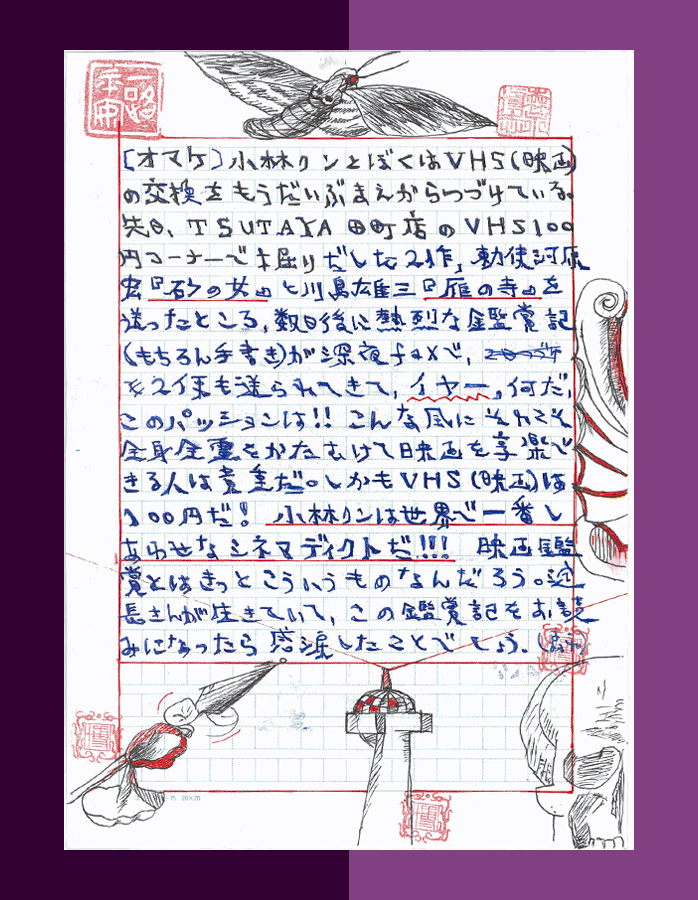 [オマケ]小林リンとぼくはVHS(映画)
の交換をもうだいぶまえからつづけている。
先日、TSUTAYA田町店のVHS100
円コーナーで掘りだした2作、勅使河原
宏『砂の女』と川島雄三『雁の寺』を
送ったところ、数日後に熱烈な鑑賞記
(もちろん手書き)が深夜faxで、
も送られてきて、イヤー、何だ、
このパッションは!! こんな風にそれこそ
全身全霊をかたむけて映画を享楽で
きる人は貴重だ。しかもVHS(映画)は
100円だ! 小林リンは世界で一番し
あわせなシネマディクトだ!!! 映画鑑
賞とはきっとこういうものなんだろう。淀
長さんが生きていて、この鑑賞記をお読
みになったら感涙したことでしょう。
20×20